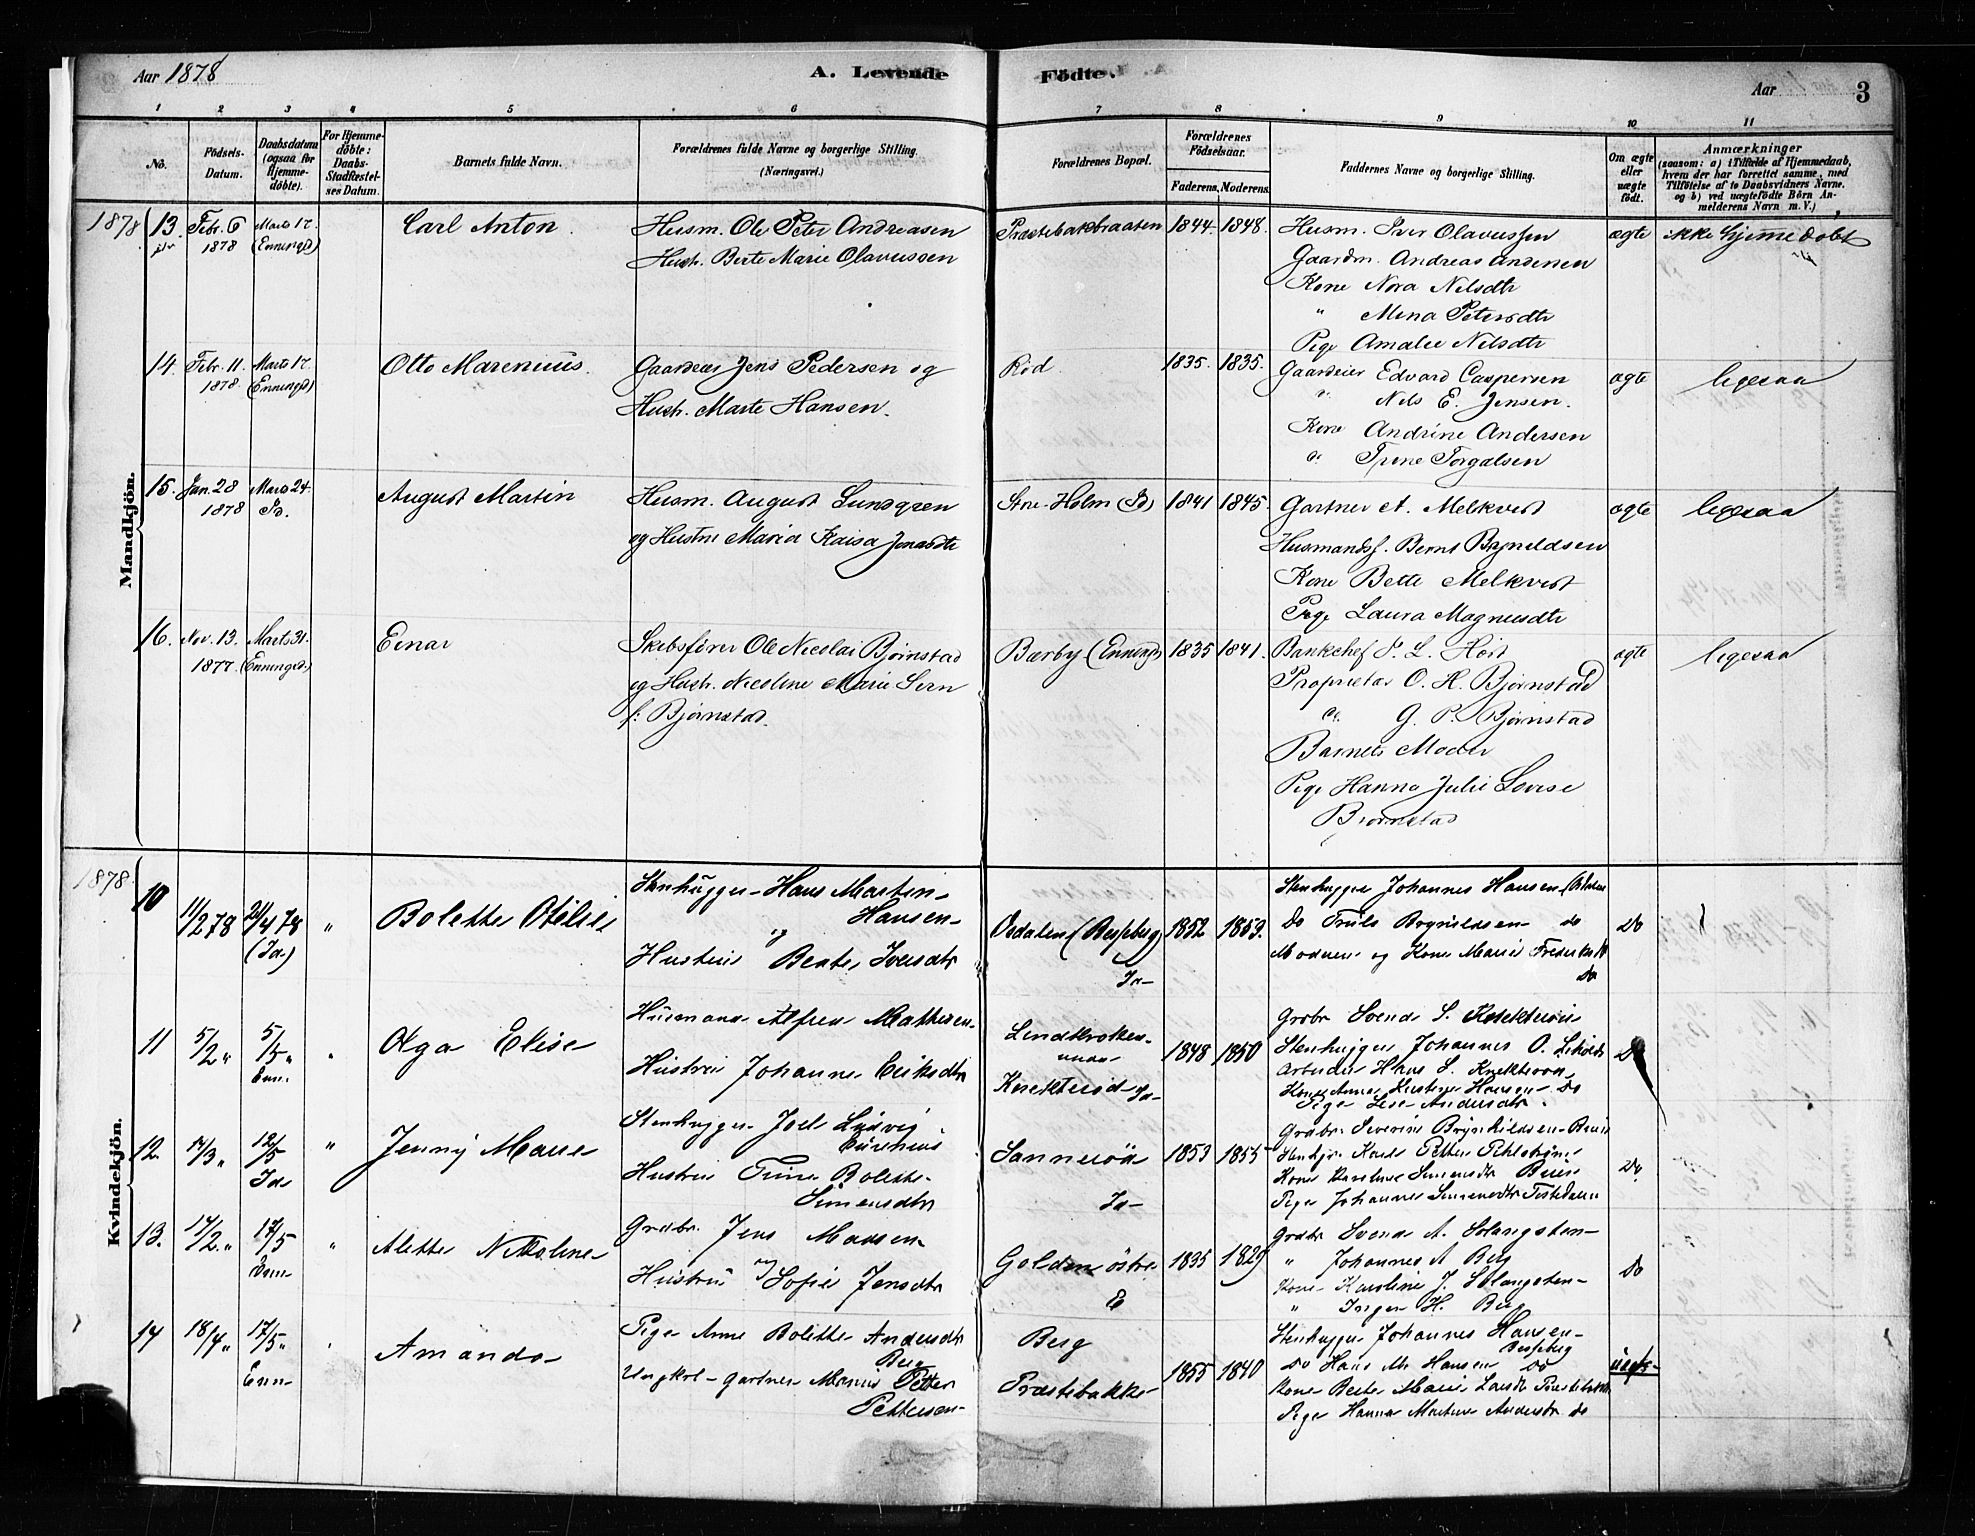 Aar 1878
A. Levende Födte.
Aar
3
1 2 3 4 5 6 7 8 9 10 11
No.
Födsels-Datum.
Daabsdatum (ogsaa for Hjemmedöbte).
For Hjemmedöbte: Daabs-Stadfæstelses Datum.
Barnets fulde Navn.
Forældrenes fulde Navne og borgerlige Stilling. (Næringsvei.)
Forældrenes Bopæl.
Forældrenes Födselsaar.
Faderens. Moderens.
Faddernes Navne og borgerlige Stilling.
Om ægte eller uægte födt.
Anmærkninger
(saasom: a) i Tilfælde af Hjemmedaab, hvem der har forrettet samme, med Tilföielse af to Daabsvidners Navne. og b) ved uægtefödte Börn Anmelderens Navn m. V.)
Mandkjön.
1878
13. Febr. 6 1878 Marts 17. (Enningd) Carl Anton Husm. Ole Peter Andreasen
Hustr. Berte Marie Olavussen
Præstebakbraaten 1844. 1848. Husm. Iver Olavussen
Gaardm. Andreas Andersen
Kone Nora Nilsdtr
" Mina Petersdtr
Pige Amalie Nilsdtr
ægte ikke hjemmedøbt
14. Febr. 11. 1878 Marts 17. (Enningd) Otto Marenius. Gaardeier Jens Pedersen og
Hustr. Marte Hansen.
Röd. 1835. 1835. Gaardeier Edvard Caspersen
" Nils E. Jensen.
Kone Andrine Andersen
d. Trine Torgalsen
ægte ligesaa
15. Jan. 28 1878 Marts 24. Id. August Martin Husm. August Lundgren
og Hustru Maria Kaisa Jonasdtr
Stne-Holm (Id) 1841 1845. Gartner A. Melkvist
Husmandsf. Bernt Brynildsen
Kone Bette Melkvist
Pige Laura Magnusdtr
ægte ligesaa
16. Nov. 13. 1877. Marts 31. (Enningd.) Einar Skibsfører Ole Nicolai Bjørnstad
og Hustr. Nicoline Marie Sern
f: Bjørnstad.
Bærby (Enningd) 1835 1841. Bankchef P. L. Høst
Proprietær O. H. Bjørnstad
do. G. P. Bjørnstad
Barnets Moder
Pige Hanna Julie Lovise
Bjørnstad
ægte ligesaa
Kvindekjön.
1878.
10 11/2 78 21/4 78 (Id.) " Bolette Otilie Stenhugger Hans Martin
Hansen
og
Hustru Beate Iversdtr
Osdalen (Bespberg)
Id
1852 1853. Stenhugger Johannes Hansen
Do Truls Brynildsen do
Moderen og Kone Marie
Do
Do
11 5/2 " 5/5 " Enn. " Olga Elise Husmand Alfred Mathisen
Hustru Johanne Eriksdtr
Knekterød Id
1848 1850 Grdbr Svend S. Knekterød
Stenhugger Johannes O.
Arbeider Hans S. Knekterød
Kone Anne Kristine Hansen Do
Pige Lise Andersdtr
Do
12. 17/3 " 12/5 Id " Jenny Marie Stenhugger Joel Ludvig
Hustru Trine Bolette
Simensdtr
Sannerød
Id
1853 1855 Grdbr. Severin Brynhildsen Buer
Stenhgr Karl Petter
Kone Karoline Simensdtr Buer
Pige Johanne Simensdtr Tistedalen
Do
13. 17/2 " 17/5 Enn " Alette Nikoline Grdbr. Jens Madsen
Hustru og Sofie Jensdtr
Golden østre
E
1835 1829 Grdbr Svend A. Solangsten
" Johannes A Berg
Kone Karoline J. Solangsten
" Inger H. Berg
Do
14 18/4 " 17/5 " Enn Amanda Pige Anne Bolette Andersdtr
Berg
Ungkrl gartner Marius Petter
Pettersen
Berg
Præstebakke
1855 1840 Stenhugger Johannes Hansen
Bespberg
do Hans M. Hansen do
Kone Berte Marie Larsdtr Præstebakke
Pige Hanna Martine Andersdtr do
uægte